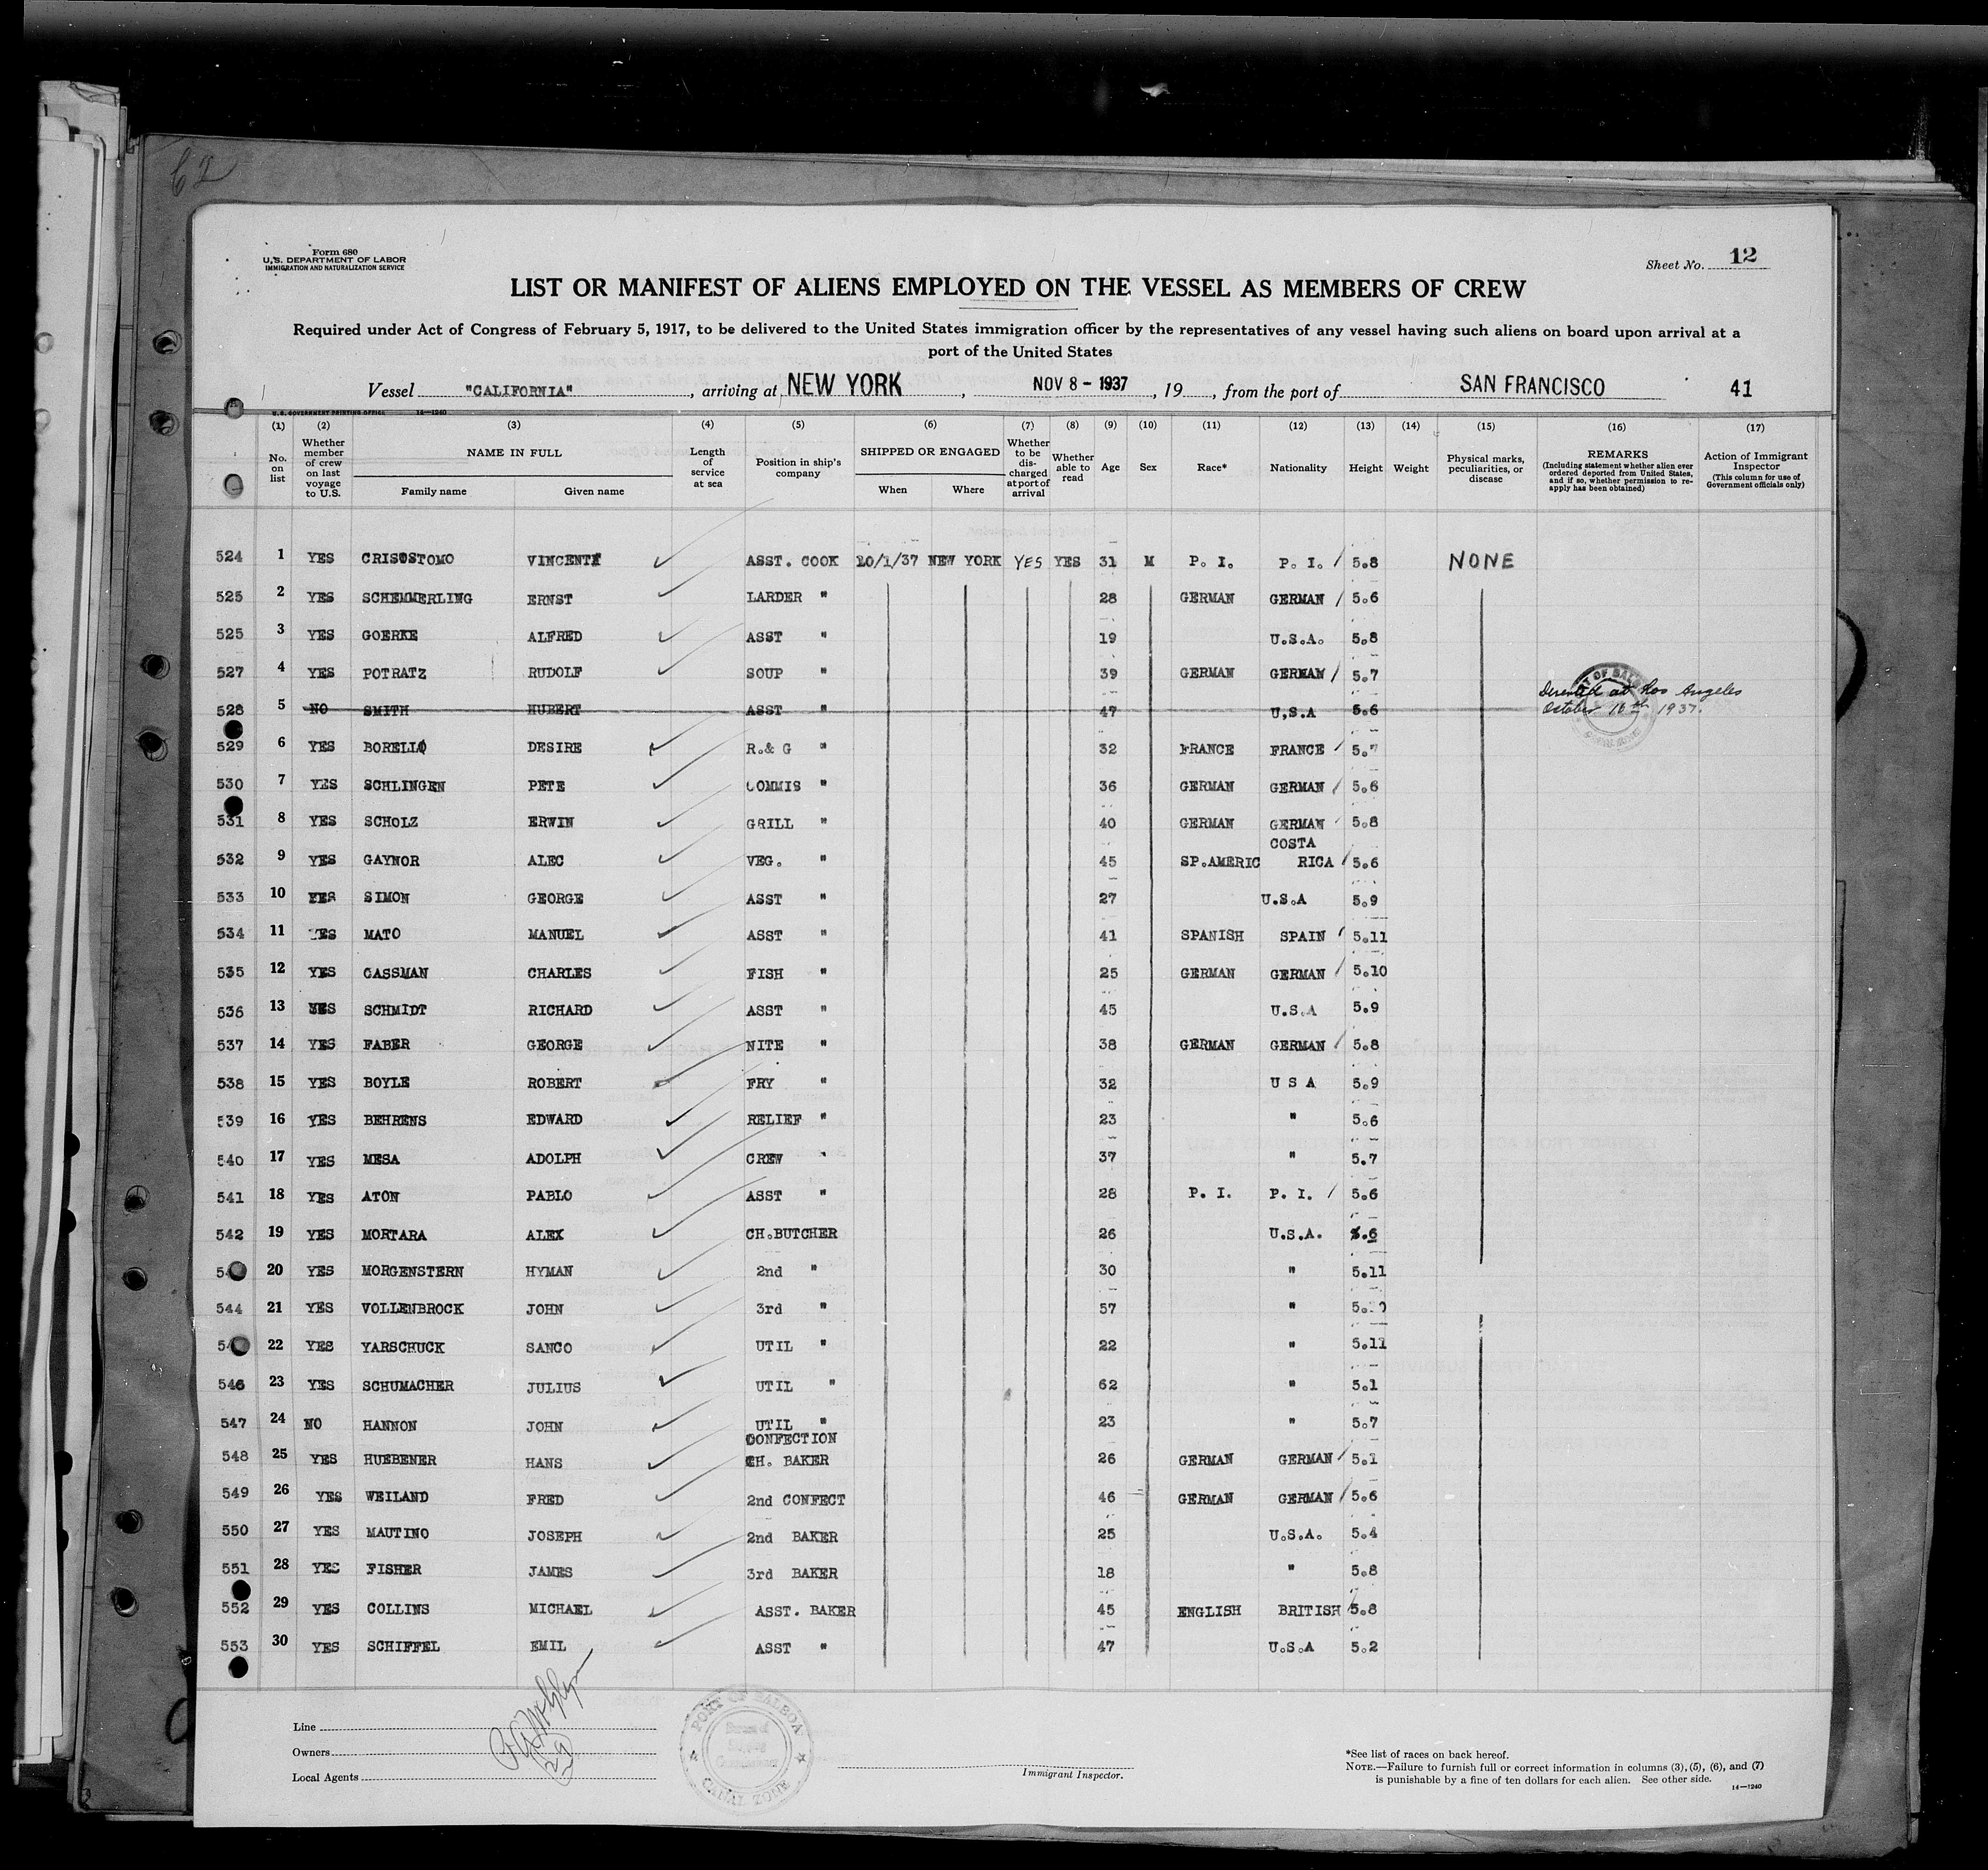 62
Form 680
U.S. DEPARTMENT OF LABOR
IMMIGRATION AND NATURALIZATION SERVICE
Sheet No. 12
LIST OR MANIFEST OF ALIENS EMPLOYED ON THE VESSEL AS MEMBERS OF CREW
Required under Act of Congress of February 5, 1917, to be delivered to the United States immigration officer by the representatives of any vessel having such aliens on board upon arrival at a
port of the United States
Vessel "CALIFORNIA", arriving at NEW YORK, NOV 8 - 1937, 19, from the port of SAN FRANCISCO 41
U.S. GOVERNMENT PRINTING OFFICE 14—1240
(1) No. on list
(2) Whether member of crew on last voyage to U.S.
(3) NAME IN FULL
Family name Given name
(4) Length of service at sea
(5) Position in ship's company
(6) SHIPPED OR ENGAGED
When Where
(7) Whether to be discharged at port of arrival
(8) Whether able to read
(9) Age
(10) Sex
(11) Race*
(12) Nationality
(13) Height
(14) Weight
(15) Physical marks, peculiarities, or disease
(16) REMARKS
(Including statement whether alien ever ordered deported from United States, and if so, whether permission to re-apply has been obtained)
(17) Action of Immigrant Inspector
(This column for use of Government officials only)
524 1 YES CRISOSTOMO VINCENT ASST. COOK 10/1/37 NEW YORK YES YES 31 M P. I. P. I. 5.8 NONE
525 2 YES SCHEMMERLING ERNST LARDER " 28 GERMAN GERMAN 5.6
525 3 YES GOERKE ALFRED ASST " 19 U.S.A. 5.8
527 4 YES POTRATZ RUDOLF SOUP " 39 GERMAN GERMAN 5.7
528 5 NO SMITH HUBERT ASST " 47 U.S.A 5.6 Deserted at Los Angeles
October 16th 1937.
529 6 YES BORELLO DESIRE R.& G " 32 FRANCE FRANCE 5.7
530 7 YES SCHLINGEN PETE COMMIS " 36 GERMAN GERMAN 5.6
531 8 YES SCHOLZ ERWIN GRILL " 40 GERMAN GERMAN 5.8
532 9 YES GAYNOR ALEC VEG. " 45 SP.AMERIC COSTA RICA 5.6
533 10 YES SIMON GEORGE ASST " 27 U.S.A 5.9
534 11 YES MATO MANUEL ASST " 41 SPANISH SPAIN 5.11
535 12 YES GASSMAN CHARLES FISH " 25 GERMAN GERMAN 5.10
536 13 YES SCHMIDT RICHARD ASST " 45 U.S.A 5.9
537 14 YES FABER GEORGE NITE " 38 GERMAN GERMAN 5.8
538 15 YES BOYLE ROBERT FRY " 32 U S A 5.9
539 16 YES BEHRENS EDWARD RELIEF " 23 " 5.6
540 17 YES MESA ADOLPH CREW " 37 " 5.7
541 18 YES ATON PABLO ASST " 28 P. I. P. I. 5.6
542 19 YES MORTARA ALEX CH.BUTCHER 26 U.S.A. 5.6
20 YES MORGENSTERN HYMAN 2nd " 30 " 5.11
544 21 YES VOLLENBROCK JOHN 3rd " 57 "
22 YES YARSCHUCK SANCO UTIL " 22 " 5.11
546 23 YES SCHUMACHER JULIUS UTIL " 62 " 5.1
547 24 NO HANNON JOHN UTIL " 23 " 5.7
548 25 YES HUEBENER HANS CONFECTION CH. BAKER 26 GERMAN GERMAN 5.1
549 26 YES WEILAND FRED 2nd CONFECT 46 GERMAN GERMAN 5.6
550 27 YES MAUTINO JOSEPH 2nd BAKER 25 U.S.A. 5.4
551 28 YES FISHER JAMES 3rd BAKER 18 " 5.8
552 29 YES COLLINS MICHAEL ASST. BAKER 45 ENGLISH BRITISH 5.8
553 30 YES SCHIFFEL EMIL ASST " 47 U.S.A 5.2
Line
Owners
Local Agents
29
PORT OF BALBOA
CANAL ZONE
Immigrant Inspector.
*See list of races on back hereof.
NOTE.—Failure to furnish full or correct information in columns (3), (5), (6), and (7)
is punishable by a fine of ten dollars for each alien. See other side.
14—1240